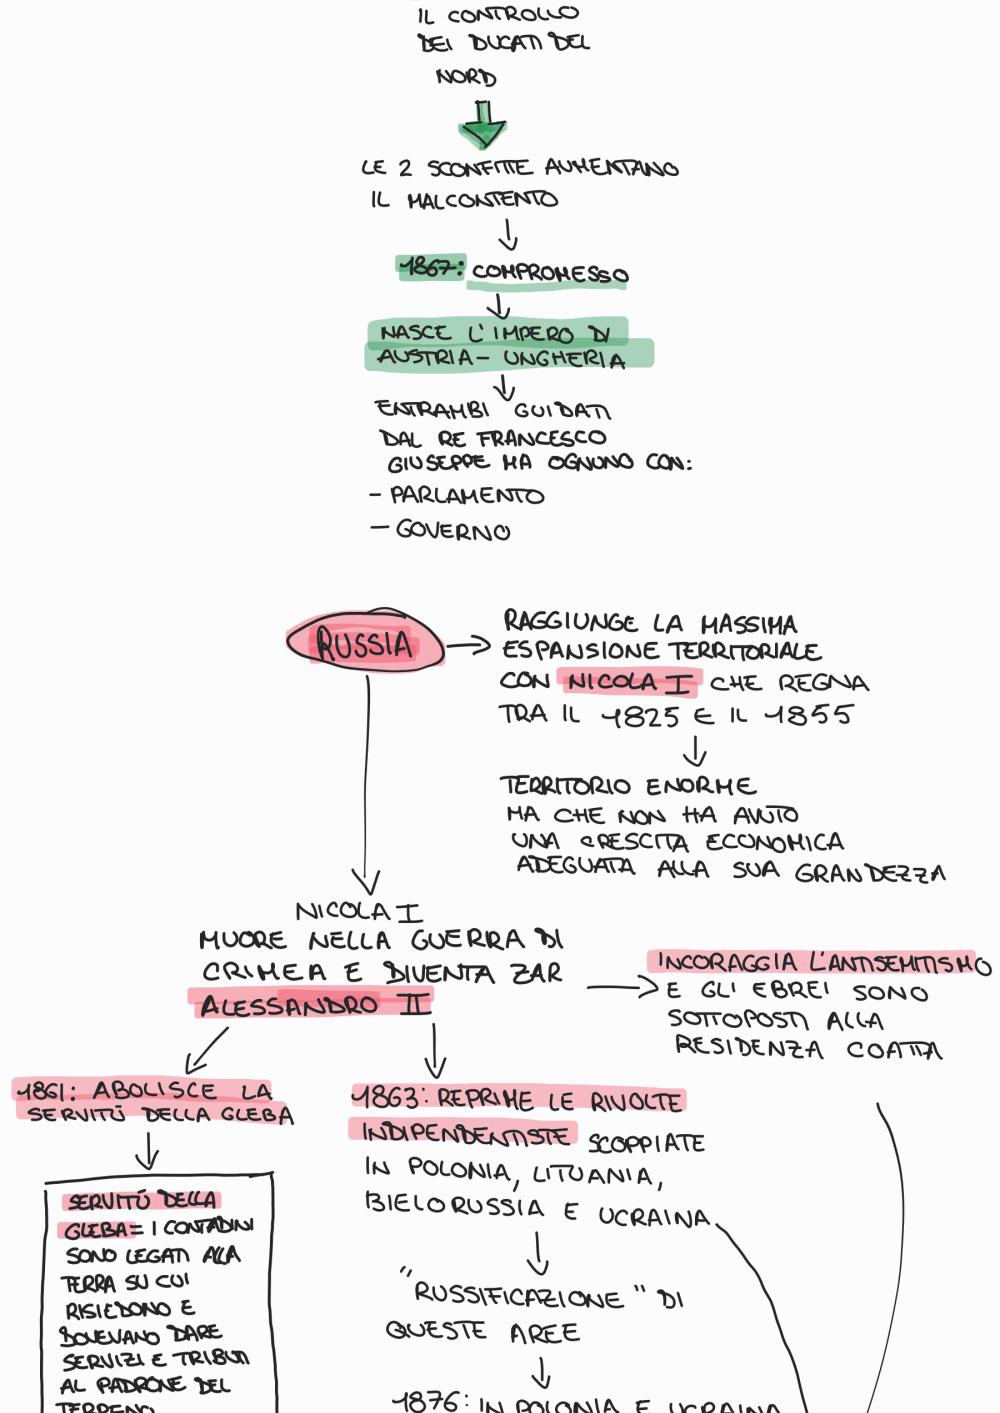 IL CONTROLLO
DEI DUCATI DEL
NORD
LE 2 SCONFITTE AUMENTANO
IL MALCONTENTO
1867: COMPROMESSO
NASCE L'IMPERO DI
AUSTRIA- UNGHERIA
ENTRAMBI GUIDATI
DAL RE FRANCESCO
GIUSEPPE MA OGNUNO CON:
- PARLAMENTO
- GOVERNO
RUSSIA
RAGGIUNGE LA MASSIMA
ESPANSIONE TERRITORIALE
CON NICOLA I CHE REGNA
TRA IL 1825 E IL 1855
TERRITORIO ENORME
MA CHE NON HA AVUTO
UNA CRESCITA ECONOMICA
ADEGUATA ALLA SUA GRANDEZZA
NICOLA I
MUORE NELLA GUERRA DI
CRIMEA E DIVENTA ZAR
ALESSANDRO II
INCORAGGIA L'ANTISEMITISMO
E GLI EBREI SONO
SOTTOPOSTI ALLA
RESIDENZA COATTA
1861: ABOLISCE LA
SERVITÙ DELLA GLEBA
SERVITÙ DELLA
GLEBA= I CONTADINI
SONO LEGATI ALLA
TERRA SU CUI
RISIEDONO E
DOVEVANO DARE
SERVIZI E TRIBUTI
AL PADRONE DEL
TERRENO
1863: REPRIME LE RIVOLTE
INDIPENDENTISTE SCOPPIATE
IN POLONIA, LITUANIA,
BIELORUSSIA E UCRAINA
"RUSSIFICAZIONE" DI
QUESTE AREE
1876: IN POLONIA E UCRAINA